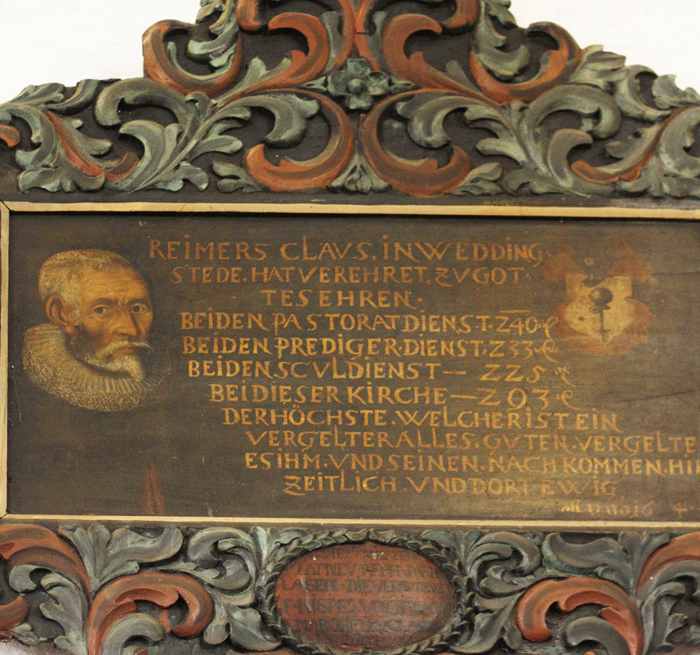 REIMERS CLAVS. IN WEDDING.
STEDE. HAT VEREHRET. ZV GOT.
TES EHREN.
BEI DEN PASTORAT DIENST. 240
BEI DEN PREDIGER DIENST. 233
BEI DEN SCVL DIENST — 225
BEI DIESER KIRCHE — 203
DER HÖCHSTE. WELCHER IST EIN
VERGELTER ALLES. GUTEN. VERGELTE
ES IHM. VND SEINEN. NACH KOMMEN. HIE
ZEITLICH. VND DORT EWIG
LASEN